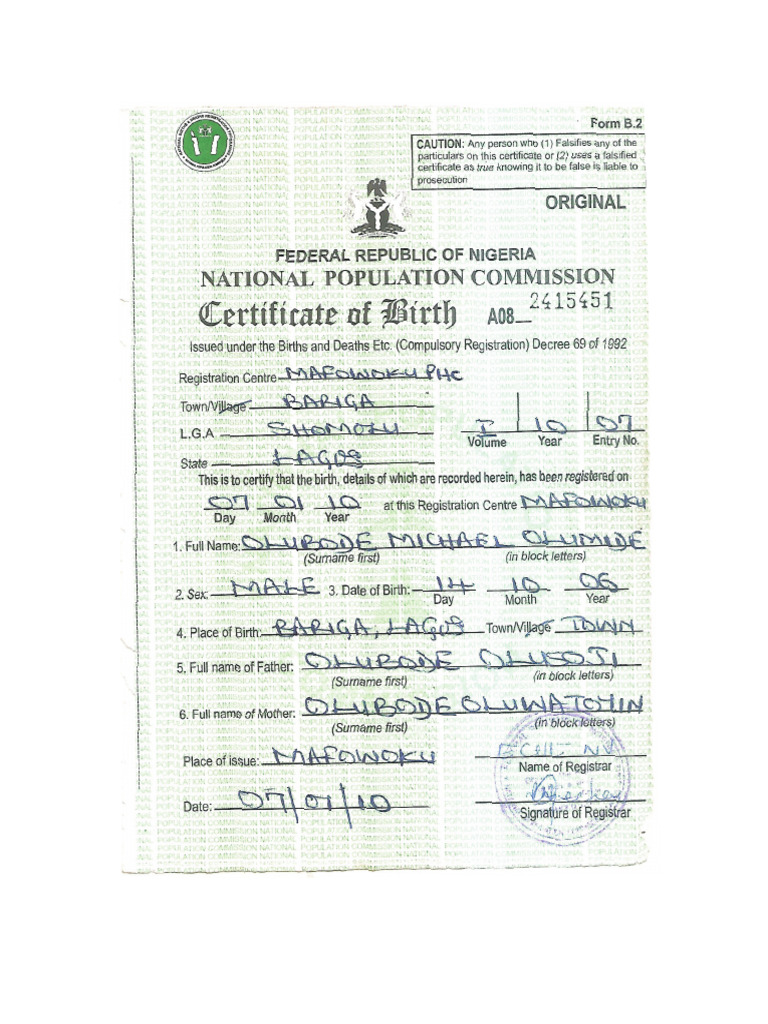 Form B.2
CAUTION: Any person who (1) Falsifies any of the
particulars on this certificate or (2) uses a falsified
certificate as true knowing it to be false is liable to
prosecution
ORIGINAL
FEDERAL REPUBLIC OF NIGERIA
NATIONAL POPULATION COMMISSION
Certificate of Birth A08 2415451
Issued under the Births and Deaths Etc. (Compulsory Registration) Decree 69 of 1992
Registration Centre MAFOWOKU PHC
Town/Village BARIGA
L.G.A SHOMOLU I 10 07
Volume Year Entry No.
State LAGOS
This is to certify that the birth, details of which are recorded herein, has been registered on
07 01 10 at this Registration Centre MAFOWOKU
Day Month Year
1. Full Name: OLUBODE MICHAEL OLUMIDE
(Surname first) (in block letters)
2. Sex: MALE 3. Date of Birth: 14 10 06
Day Month Year
4. Place of Birth: BARIGA, LAGOS Town/Village TOWN
5. Full name of Father: OLUBODE OLUSOJI
(Surname first) (in block letters)
6. Full name of Mother: OLUBODE OLUWATOYIN
(Surname first) (in block letters)
Place of issue: MAFOWOKU
Name of Registrar
Date: 07/01/10
Signature of Registrar